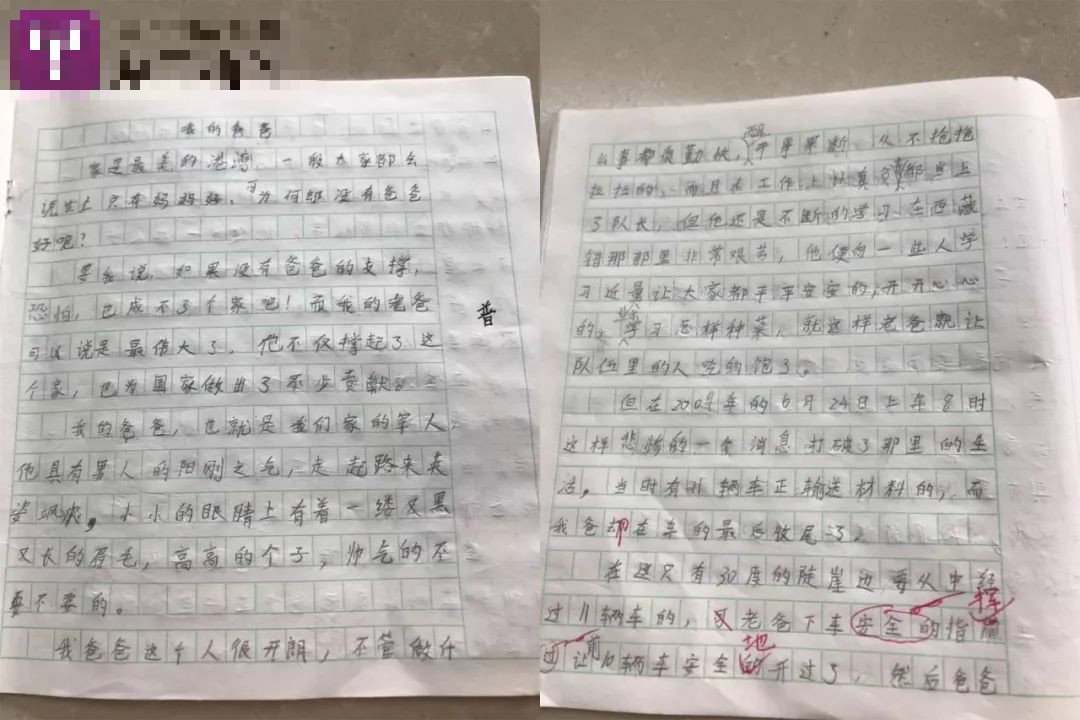 我的爸爸
家是最美的港湾，一般大家都会
说世上只有妈妈好，可为何组没有爸爸
好呢？
要我说，如果没有爸爸的支撑，
恐怕，也成不了个家吧！而我的老爸
可以说是最伟大了，他不仅撑起了这
个家，也为国家做出了不少贡献。
我的爸爸，也就是我们家的军人，
他具有男人的阳刚之气，走起路来英
姿飒爽，小小的眼睛上有着一缕又黑
又长的眉毛，高高的个子，帅气的不
要不要的。
我爸爸这个人很开朗，不管做什
普
么事都很勤快，干事果断，从不拖拖
拉拉的，而且在工作上认真负责都当上
了队长，但他还是不断的学习，在西藏
错那那里非常艰苦，他便向一些人学
习近量让大家都平平安安的，开开心心
的，学习怎样种菜，就这样老爸就让
队伍里的人吃的饱了。
但在200年的6月24日上午8时
这样悲惨的一个消息打破了那里的生
活，当时有11辆车正输送材料的，而
我爸却在车的最后收尾了，
在这只有30度的陡崖边要从中经
过11辆车的，老爸下车安全的指挥
让前10辆车安全地的开过了，然后爸爸